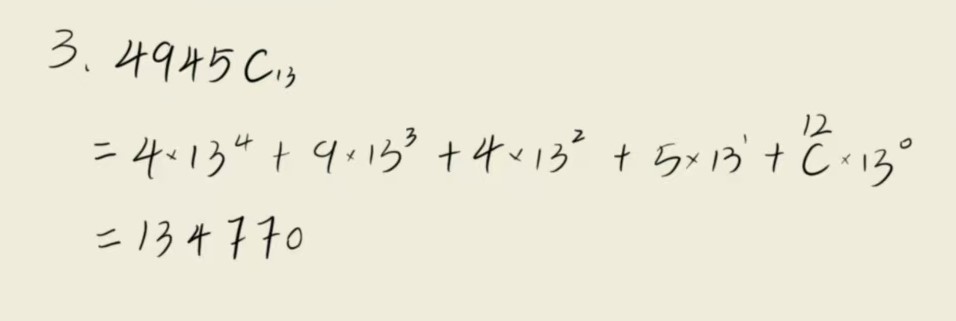 3. 4945C₁₃
= 4×13⁴ + 9×13³ + 4×13² + 5×13¹ + C×13⁰
12
= 134770